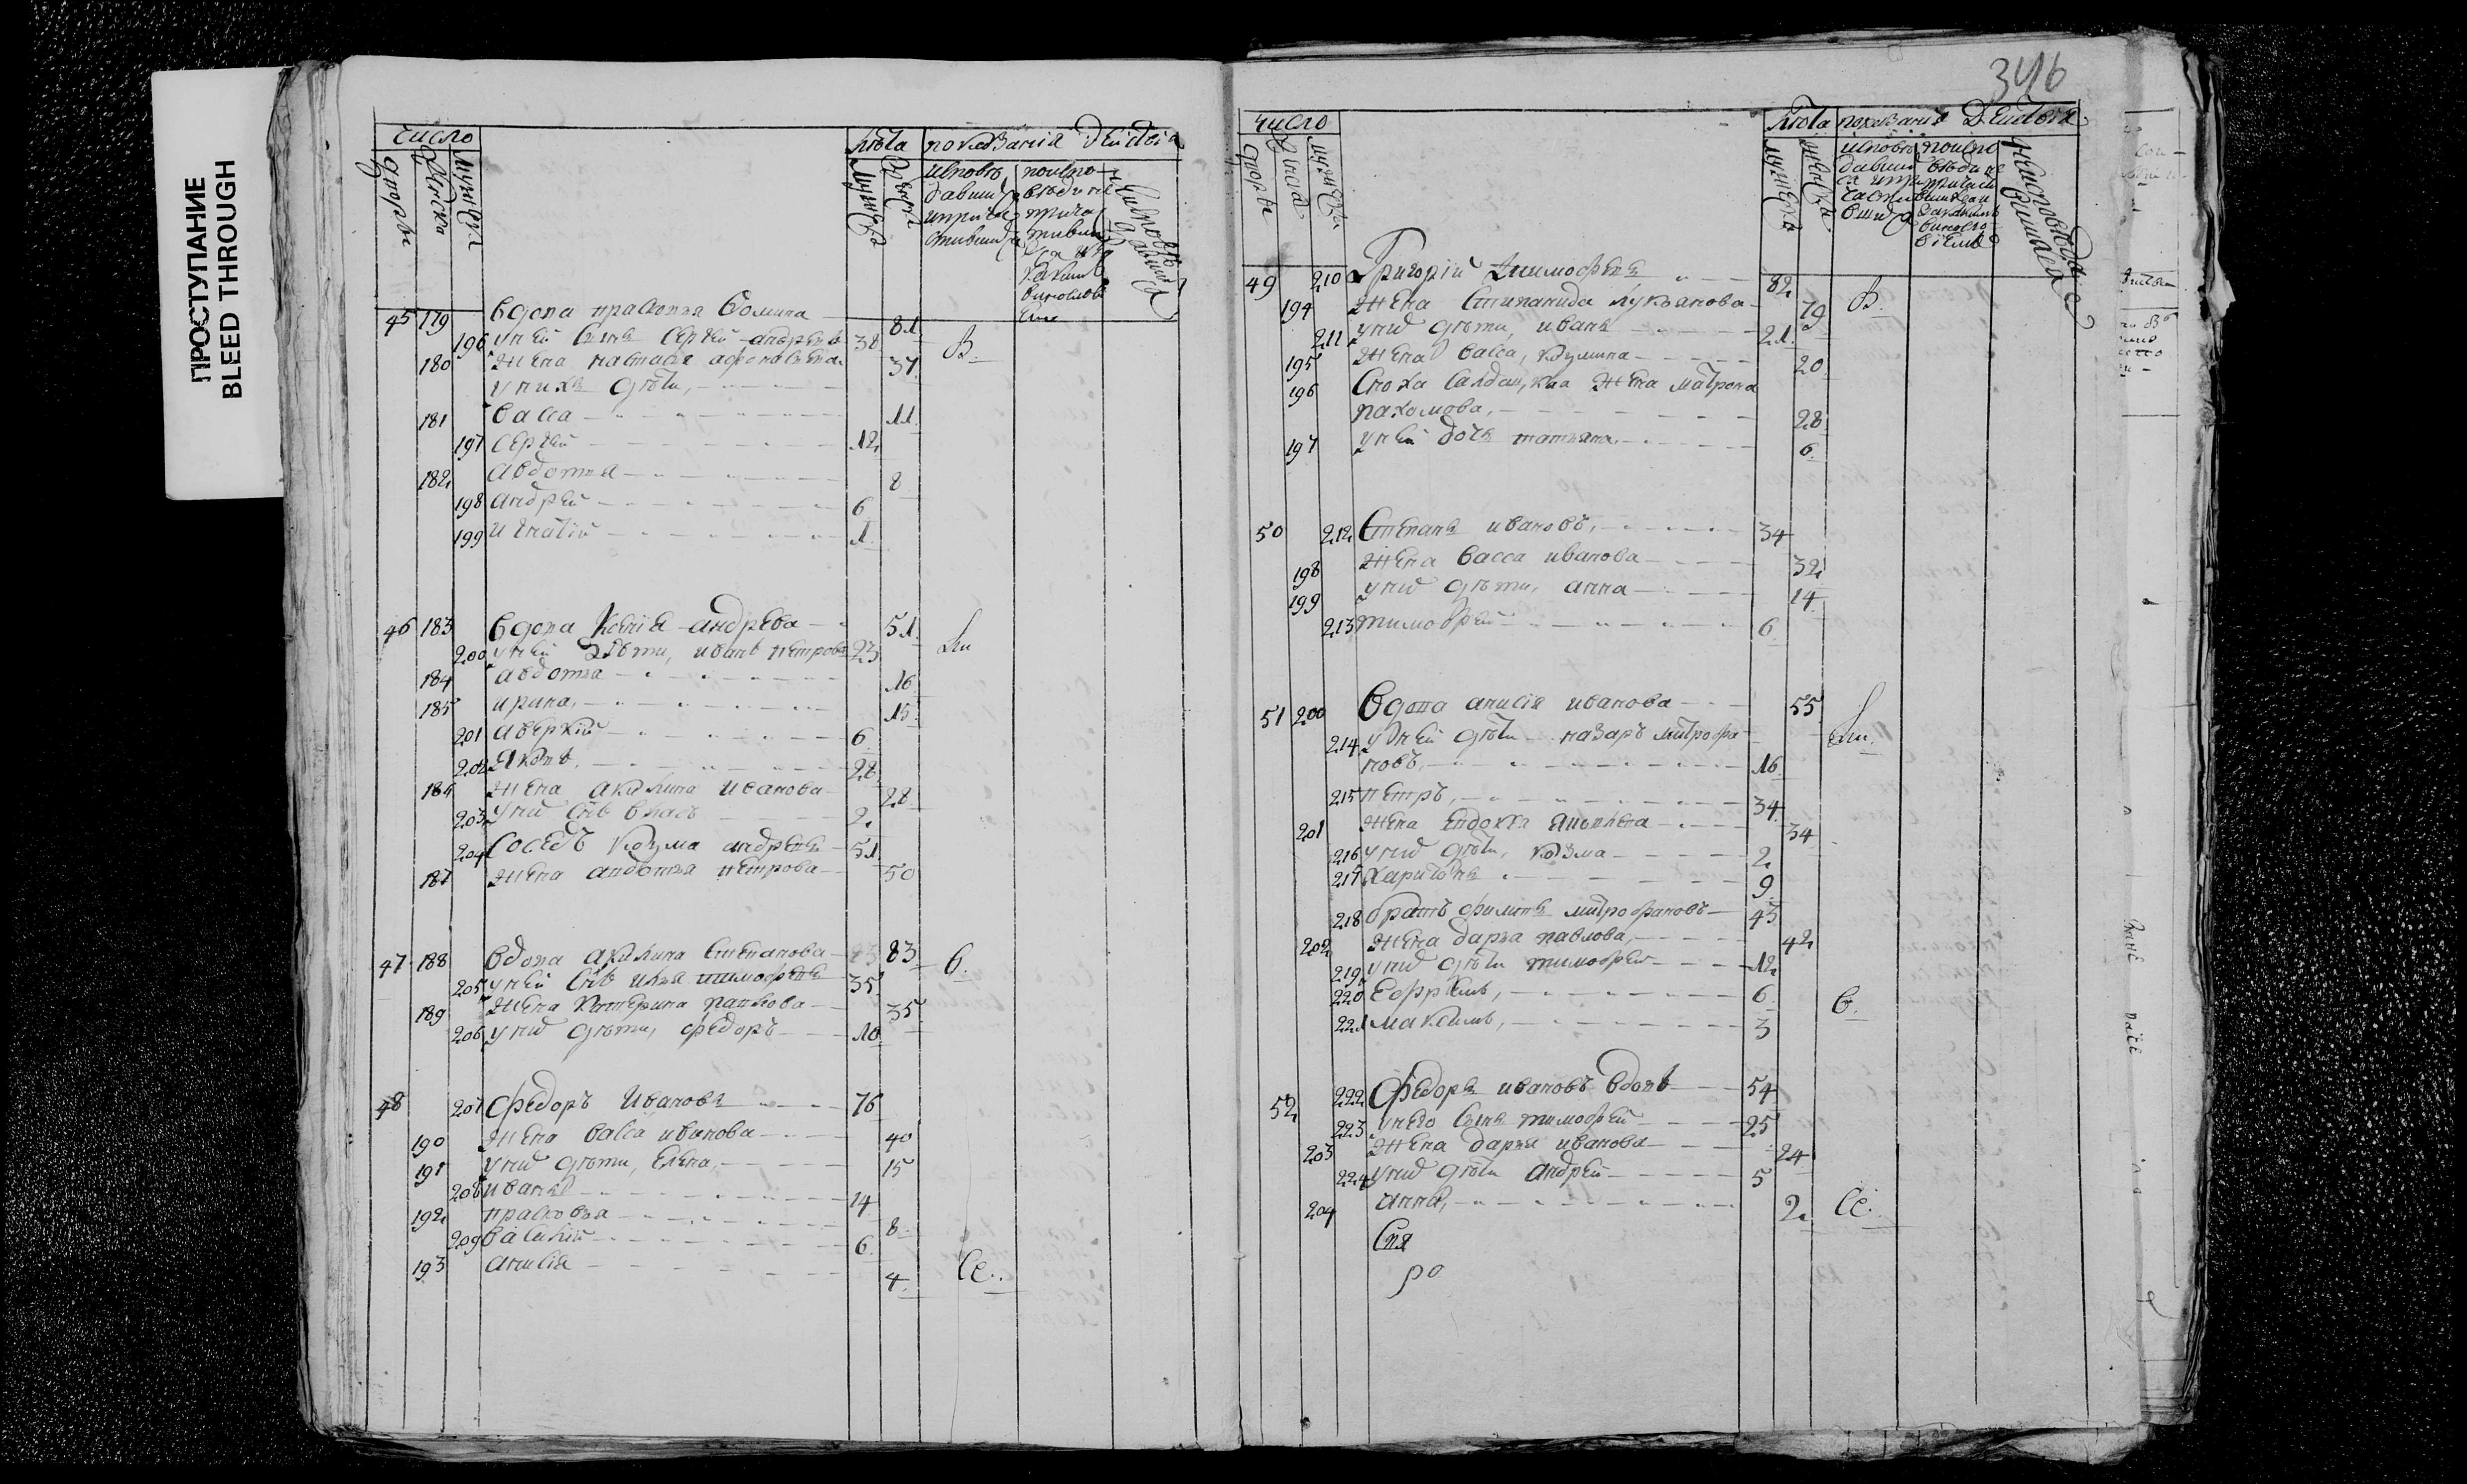 ПРОСТУПАНИЕ
BLEED THROUGH
число
лѣта показанія дѣйства
дворы
женска
мужеска
мужеска
женска
исповѣ
давши
и прича
стивши
поиспо
вѣди не
прича
стивши
какимъ
винослов
45 179 вдова прасковья Фомина 81
196 у ней сынъ сергей андреевъ 38 В.
180 жена настасья афонасьева 37
у нихъ дѣти,
181 васса 11
197 сергей 12
182 авдотья 8
198 андрей 6
199 игнатій 1
46 183 вдова ксенія андрева 51
200 у ней дѣти, иванъ петровъ 23
184 авдотья 16
185 ирина, 15
201 аверкій 6
202 Яковъ, 28
186 жена акилина иванова 28
203 у нихъ сынъ власъ 2
204 Соседъ козма андреевъ 51
187 жена авдотья петрова 50
47 188 вдова акилина степанова 83 В.
205 у ней сынъ илья тимофеевъ 35
189 жена катерина павлова 35
206 у нихъ дѣти, федоръ 10
48 207 Федоръ Ивановъ 76
190 жена васса иванова 40
191 у нихъ дѣти, Елена, 15
208 иванъ 14
192 прасковья 8
209 василій 6
193 анисія 4 Се..
346
число
лѣта показанія дѣйства
дворы
женска
мужеска
мужеска
женска
49 210 Григорій Тимофеевъ 82
194 жена степанида лукьянова 79 В.
211 у нихъ дѣти, иванъ 21.
195 жена васса, козмина 20
196 Сноха салдацкая жена матрона
пахомова, 28
197 у ней дочь татьяна. 6.
50 212 Степанъ ивановъ, 34
198 жена васса иванова 32
199 у нихъ дѣти, анна 14
213 тимофей 6
51 200 Вдова анисія иванова 55
214 у ней дѣти назаръ митрофа
новъ, 16
215 петръ, 34
201 жена Евдокія 34
216 у нихъ дѣти, козма 2
217 харитонъ 9
218 братъ филипъ митрофановъ 43
202 жена дарья павлова, 42
219 у нихъ дѣти тимофей 12
220 Ефремъ, 6
221 максимъ, 3 В.
52 222 Федоръ ивановъ вдовъ 54
223 у него сынъ тимофей 25
203 жена дарья иванова 24
224 у нихъ дѣти андрей 5
204 анна, 2 Се..
ро